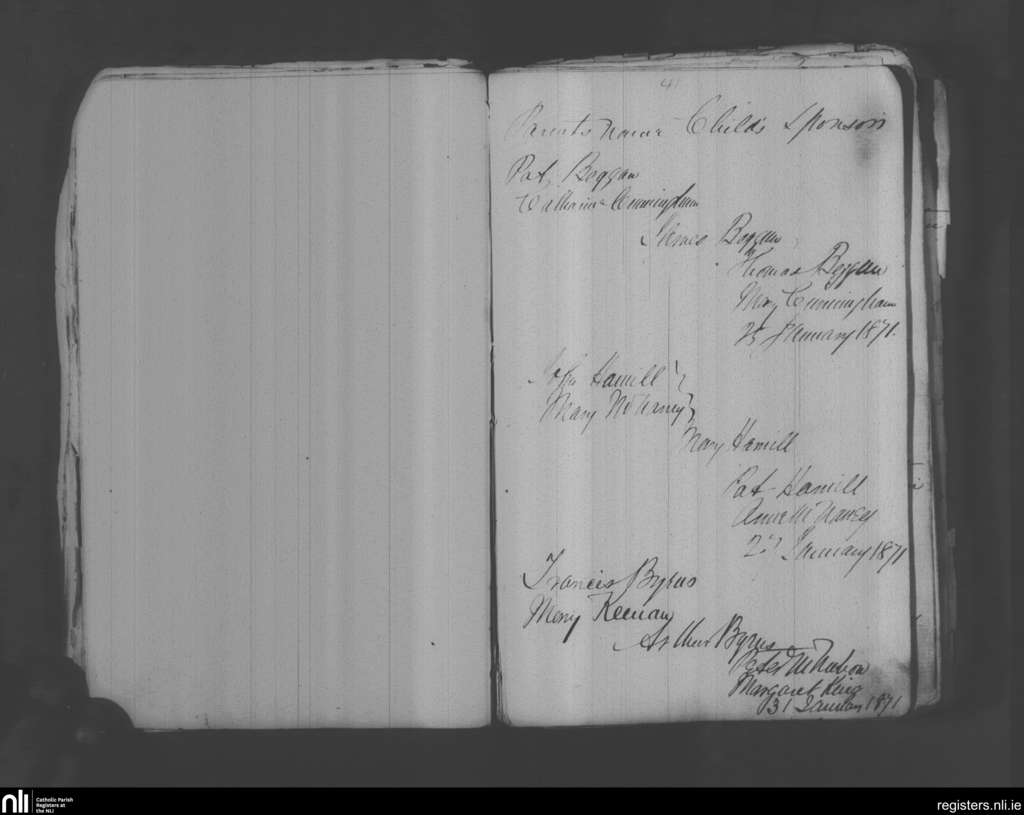 41
Parents name Child's Sponsors
Pat Boggan
Catharine Cunningham
James Boggan
Thomas Boggan
Mary Cunningham
January 1871.
John Hamill
Mary McNaney
Mary Hamill
Pat Hamill
Anne McNaney
January 1871
Francis Byrns
Mary Keenan
Arthur Byrns
Peter
Margaret King
31 January 1871
nli Catholic Parish
Registers at
the NLI
registers.nli.ie